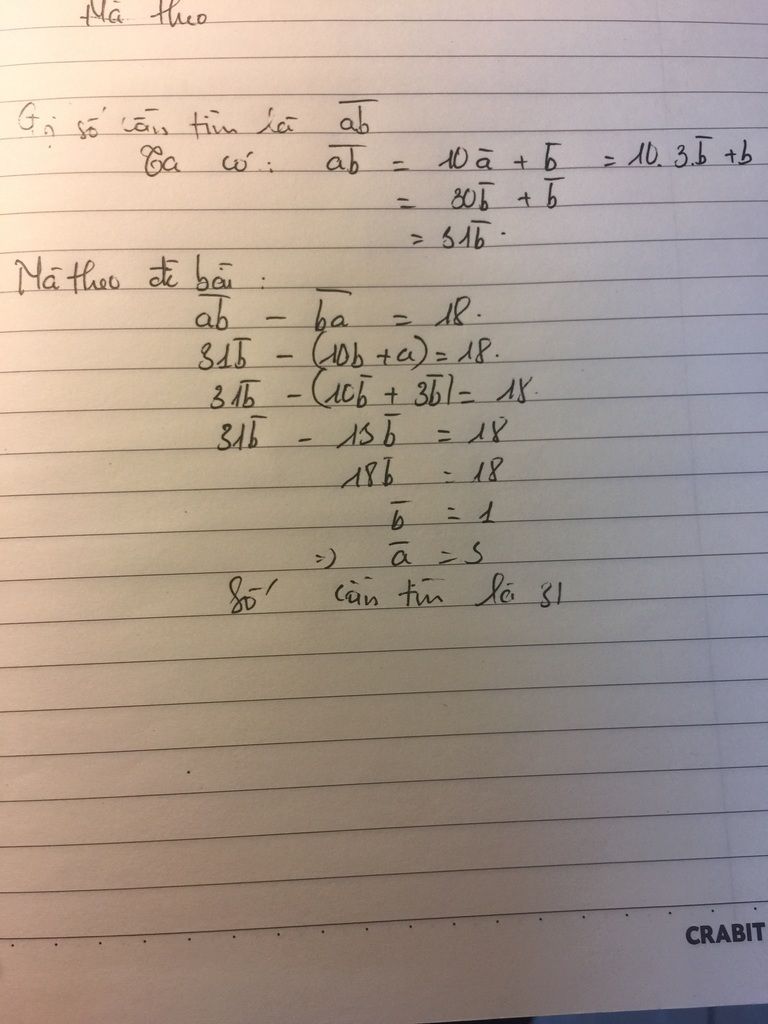 Mà theo
Gọi số cần tìm là a̅b̅
Ta có: a̅b̅ = 10a̅ + b̅ = 10. 3.b̅ + b
= 30b̅ + b̅
= 31b̅.
Mà theo đề bài:
a̅b̅ - b̅a̅ = 18.
31b̅ - (10b + a) = 18.
31b̅ - (10b̅ + 3b̅) = 18.
31b̅ - 13b̅ = 18
18b̅ = 18
b̅ = 1
=) a̅ = 3
Số cần tìm là 31
CRABIT